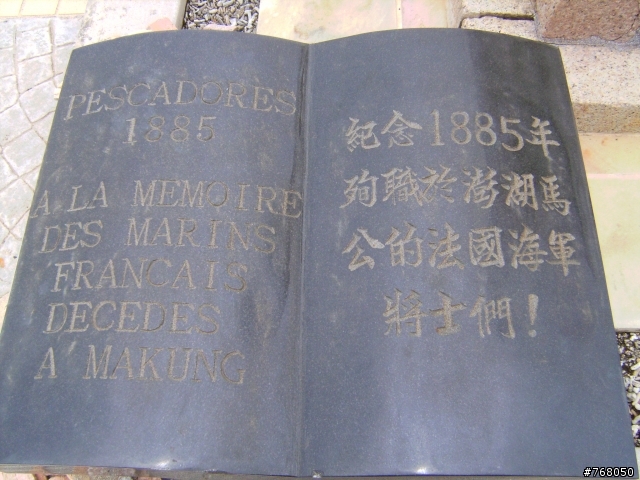 PESCADORES
1885
A LA MEMOIRE
DES MARINS
FRANCAIS
DECEDES
A MAKUNG
紀念1885年
殉職於澎湖馬
公的法國海軍
將士們!
#768050